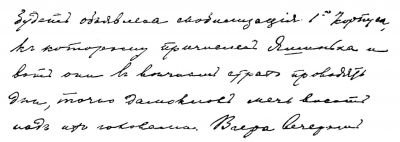 будетъ объявлена мобилизація 1го Корпуса,
къ которому причисленъ Яшинька и
вотъ они въ вѣчномъ страхѣ проводятъ
дни, точно дамокловъ мечь виситъ
надъ ихъ головами. Вчера вечеромъ